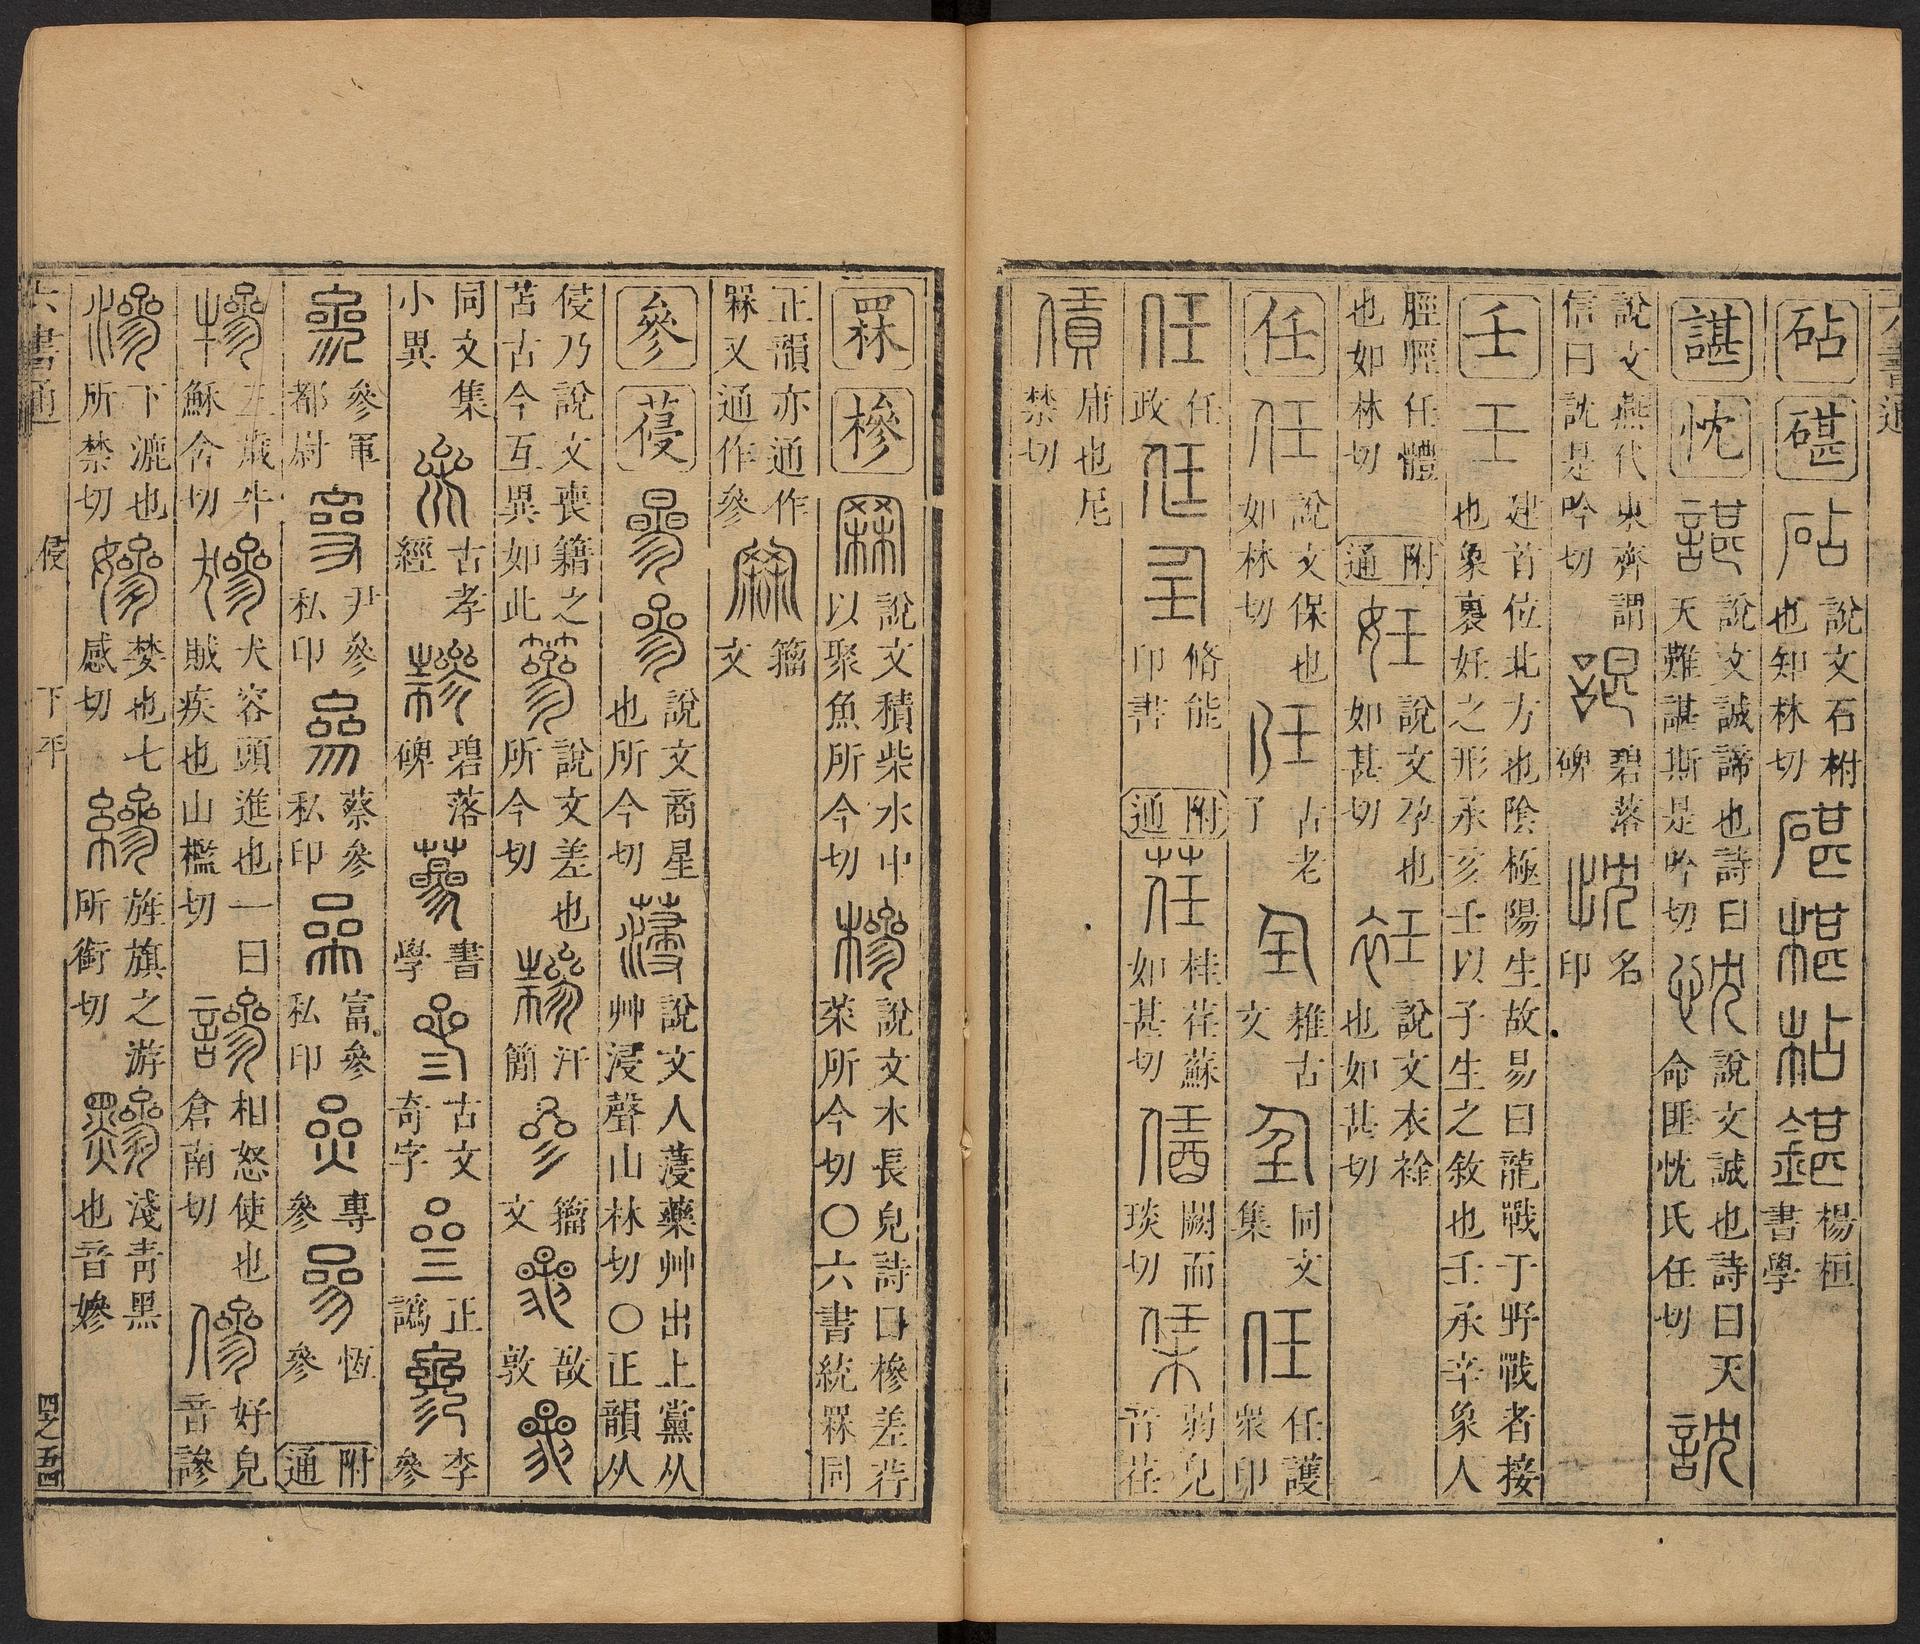 六書通
砧 碪 砧 說文石柎也知林切 碪 椹 枮 鍖 楊桓書學
諶 忱 諶 說文誠諦也詩曰天難諶斯是吟切 忱 說文誠也詩曰天命匪忱氏任切 訦
說文燕代東齊謂信曰訦是吟切 諶 碧落碑 忱 名印
壬 壬 建首位北方也陰極陽生故易曰龍戰于野戰者接也象褢妊之形承亥壬以子生之敘也壬承辛象人
脛脛任體也如林切 附通 妊 說文孕也如甚切 衽 說文衣䘳也如甚切
任 任 說文保也如林切 任 古老子 雜古文 同文集 任 任護衆印
任 任政 任 脩能印書 附通 荏 桂荏蘇如甚切 闕而琰切 弱皃音荏
賃 庸也尼禁切
罧 槮 罧 說文積柴水中以聚魚所今切 槮 說文木長皃詩曰槮差荇菜所今切〇六書統罧同
正韻亦通作罧又通作參 籀文
參 葠 曑 參 說文商星也所今切 薓 說文人薓藥艸出上黨从艸浸聲山林切〇正韻从
侵乃說文喪藉之苫古今互異如此 篸 說文差也所今切 汗簡 籀文 敔敦
同文集小異 古孝經 碧落碑 書學 古文奇字 正譌 李參
參軍都尉 尹參私印 蔡參私印 富參私印 專參 恆參 附通
犙 三歲牛穌含切 㺑 犬容頭進也一曰賊疾也山檻切 謲 相怒使也倉南切 傪 好皃音謲
滲 下漉也所禁切 嬠 婪也七感切 縿 旌旗之游所銜切 黲 淺青黑也音嬠
六書通 侵 下平 四之五四